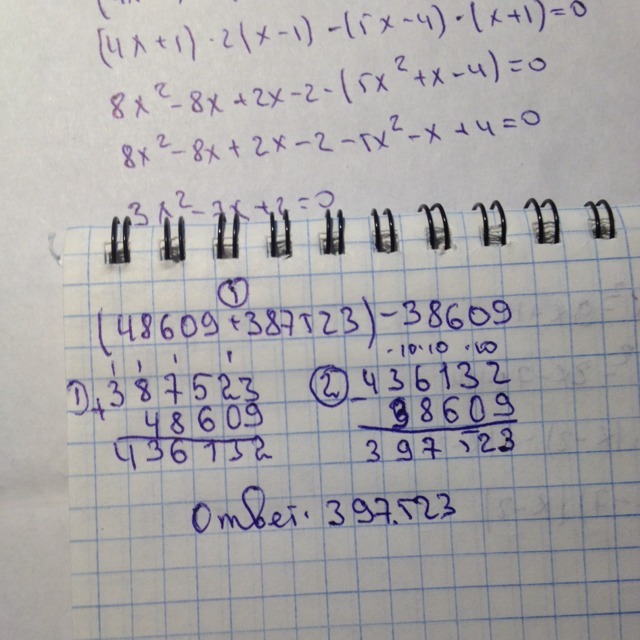 (4x+1)·2(x-1)-(5x-4)·(x+1)=0
8x²-8x+2x-2-(5x²+x-4)=0
8x²-8x+2x-2-5x²-x+4=0
3x²-7x+2=0
1
(48609+387523)-38609
1) +387523
48609
436132
2 -436132
38609
397523
Ответ. 397523